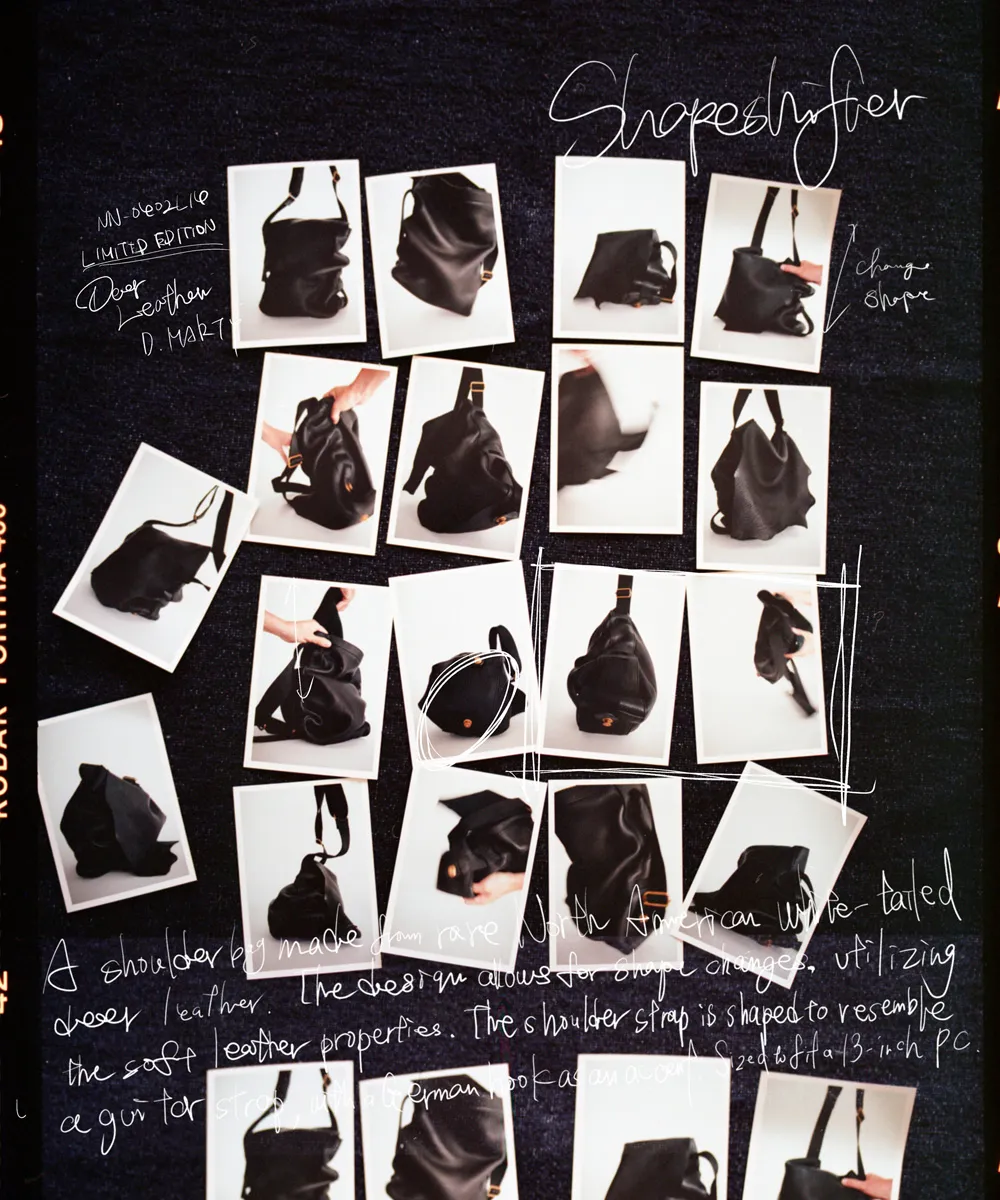 Shapeshifter
NN-0602L16
LIMITED EDITION
Deer
Leather
D. MARTY
change
shape
A shoulder bag made from rare North American white-tailed
deer leather. The design allows for shape changes, utilizing
the soft leather properties. The shoulder strap is shaped to resemble
a guitar strap, with a German hook as an accent. A Sized to fit a 13-inch PC.
KODAK PORTRA 400
42